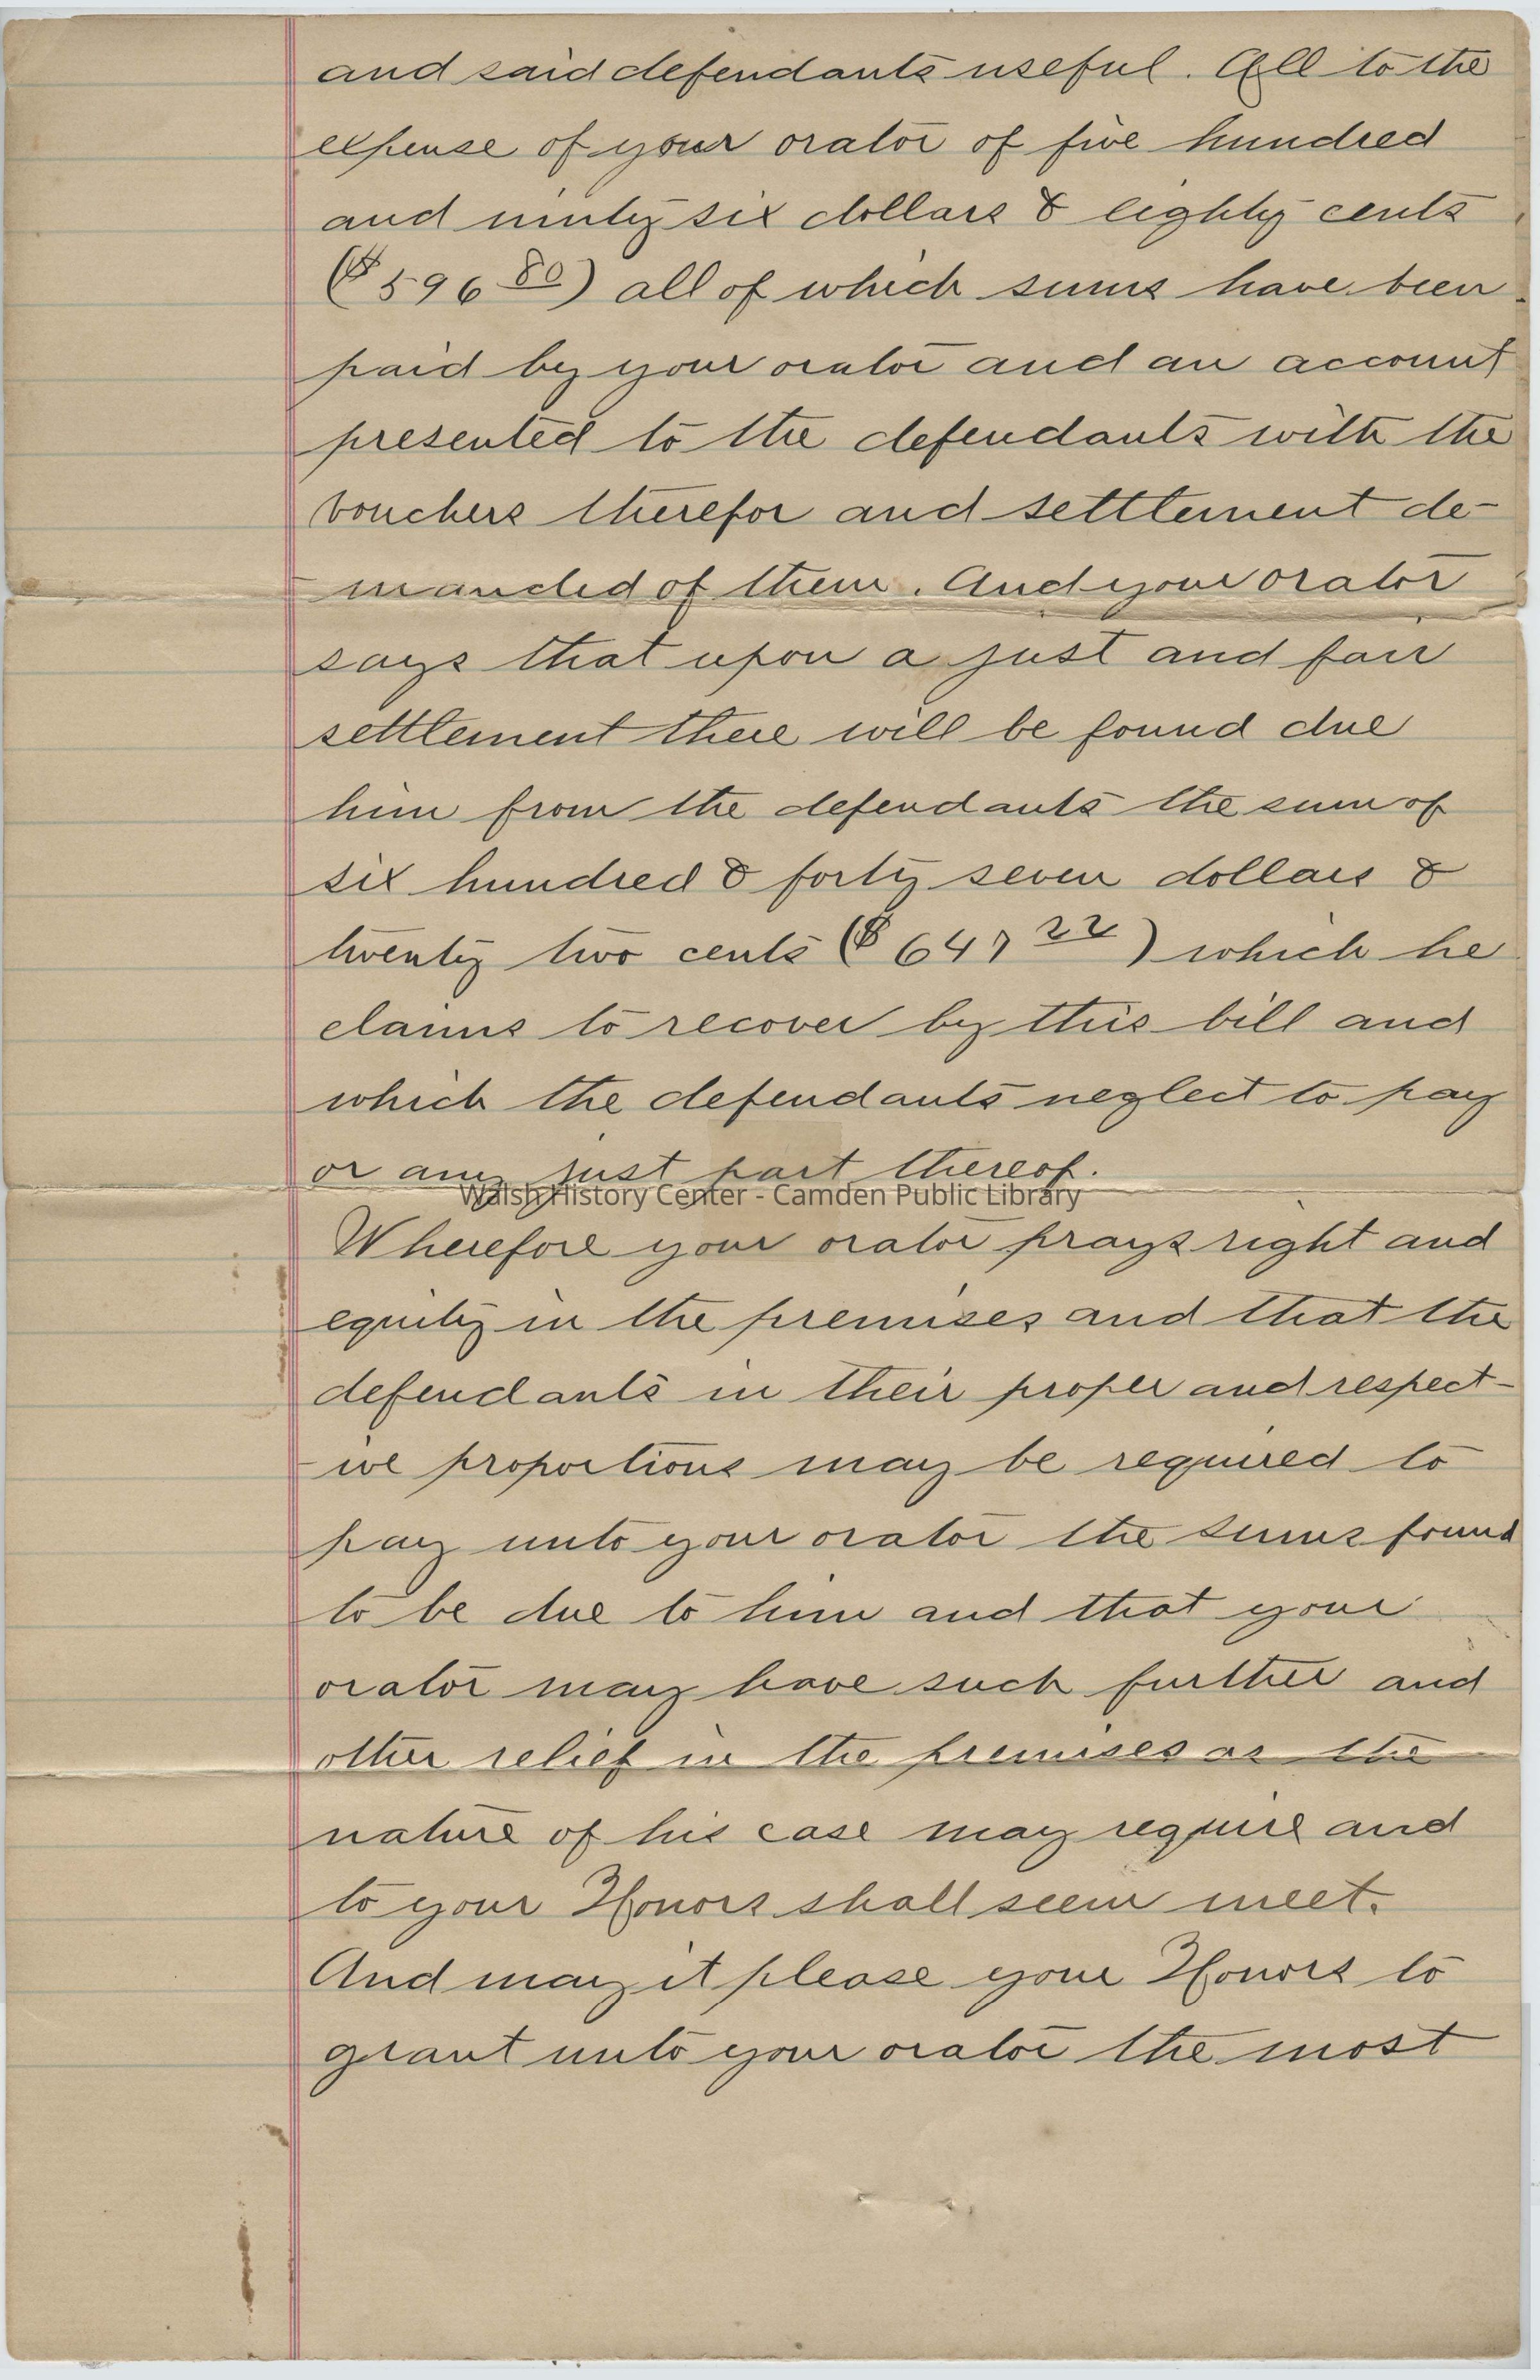 and said defendants useful. All to the
expense of your orator of five hundred
and ninty six dollars & eighty cents
($596 80) all of which sums have been
paid by your orator and an account
presented to the defendants with the
vouchers therefor and settlement de-
-manded of them. And your orator
says that upon a just and fair
settlement there will be found due
him from the defendants the sum of
six hundred & forty seven dollars &
twenty two cents ($647 22) which he
claims to recover by this bill and
which the defendants neglect to pay
or any just part thereof.
Walsh History Center - Camden Public Library
Wherefore your orator prays right and
equity in the premises and that the
defendants in their proper and respect-
-ive proportions may be required to
pay unto your orator the sums found
to be due to him and that your
orator may have such further and
other relief in the premises as the
nature of his case may require and
to your Honors shall seem meet.
And may it please your Honors to
grant unto your orator the most